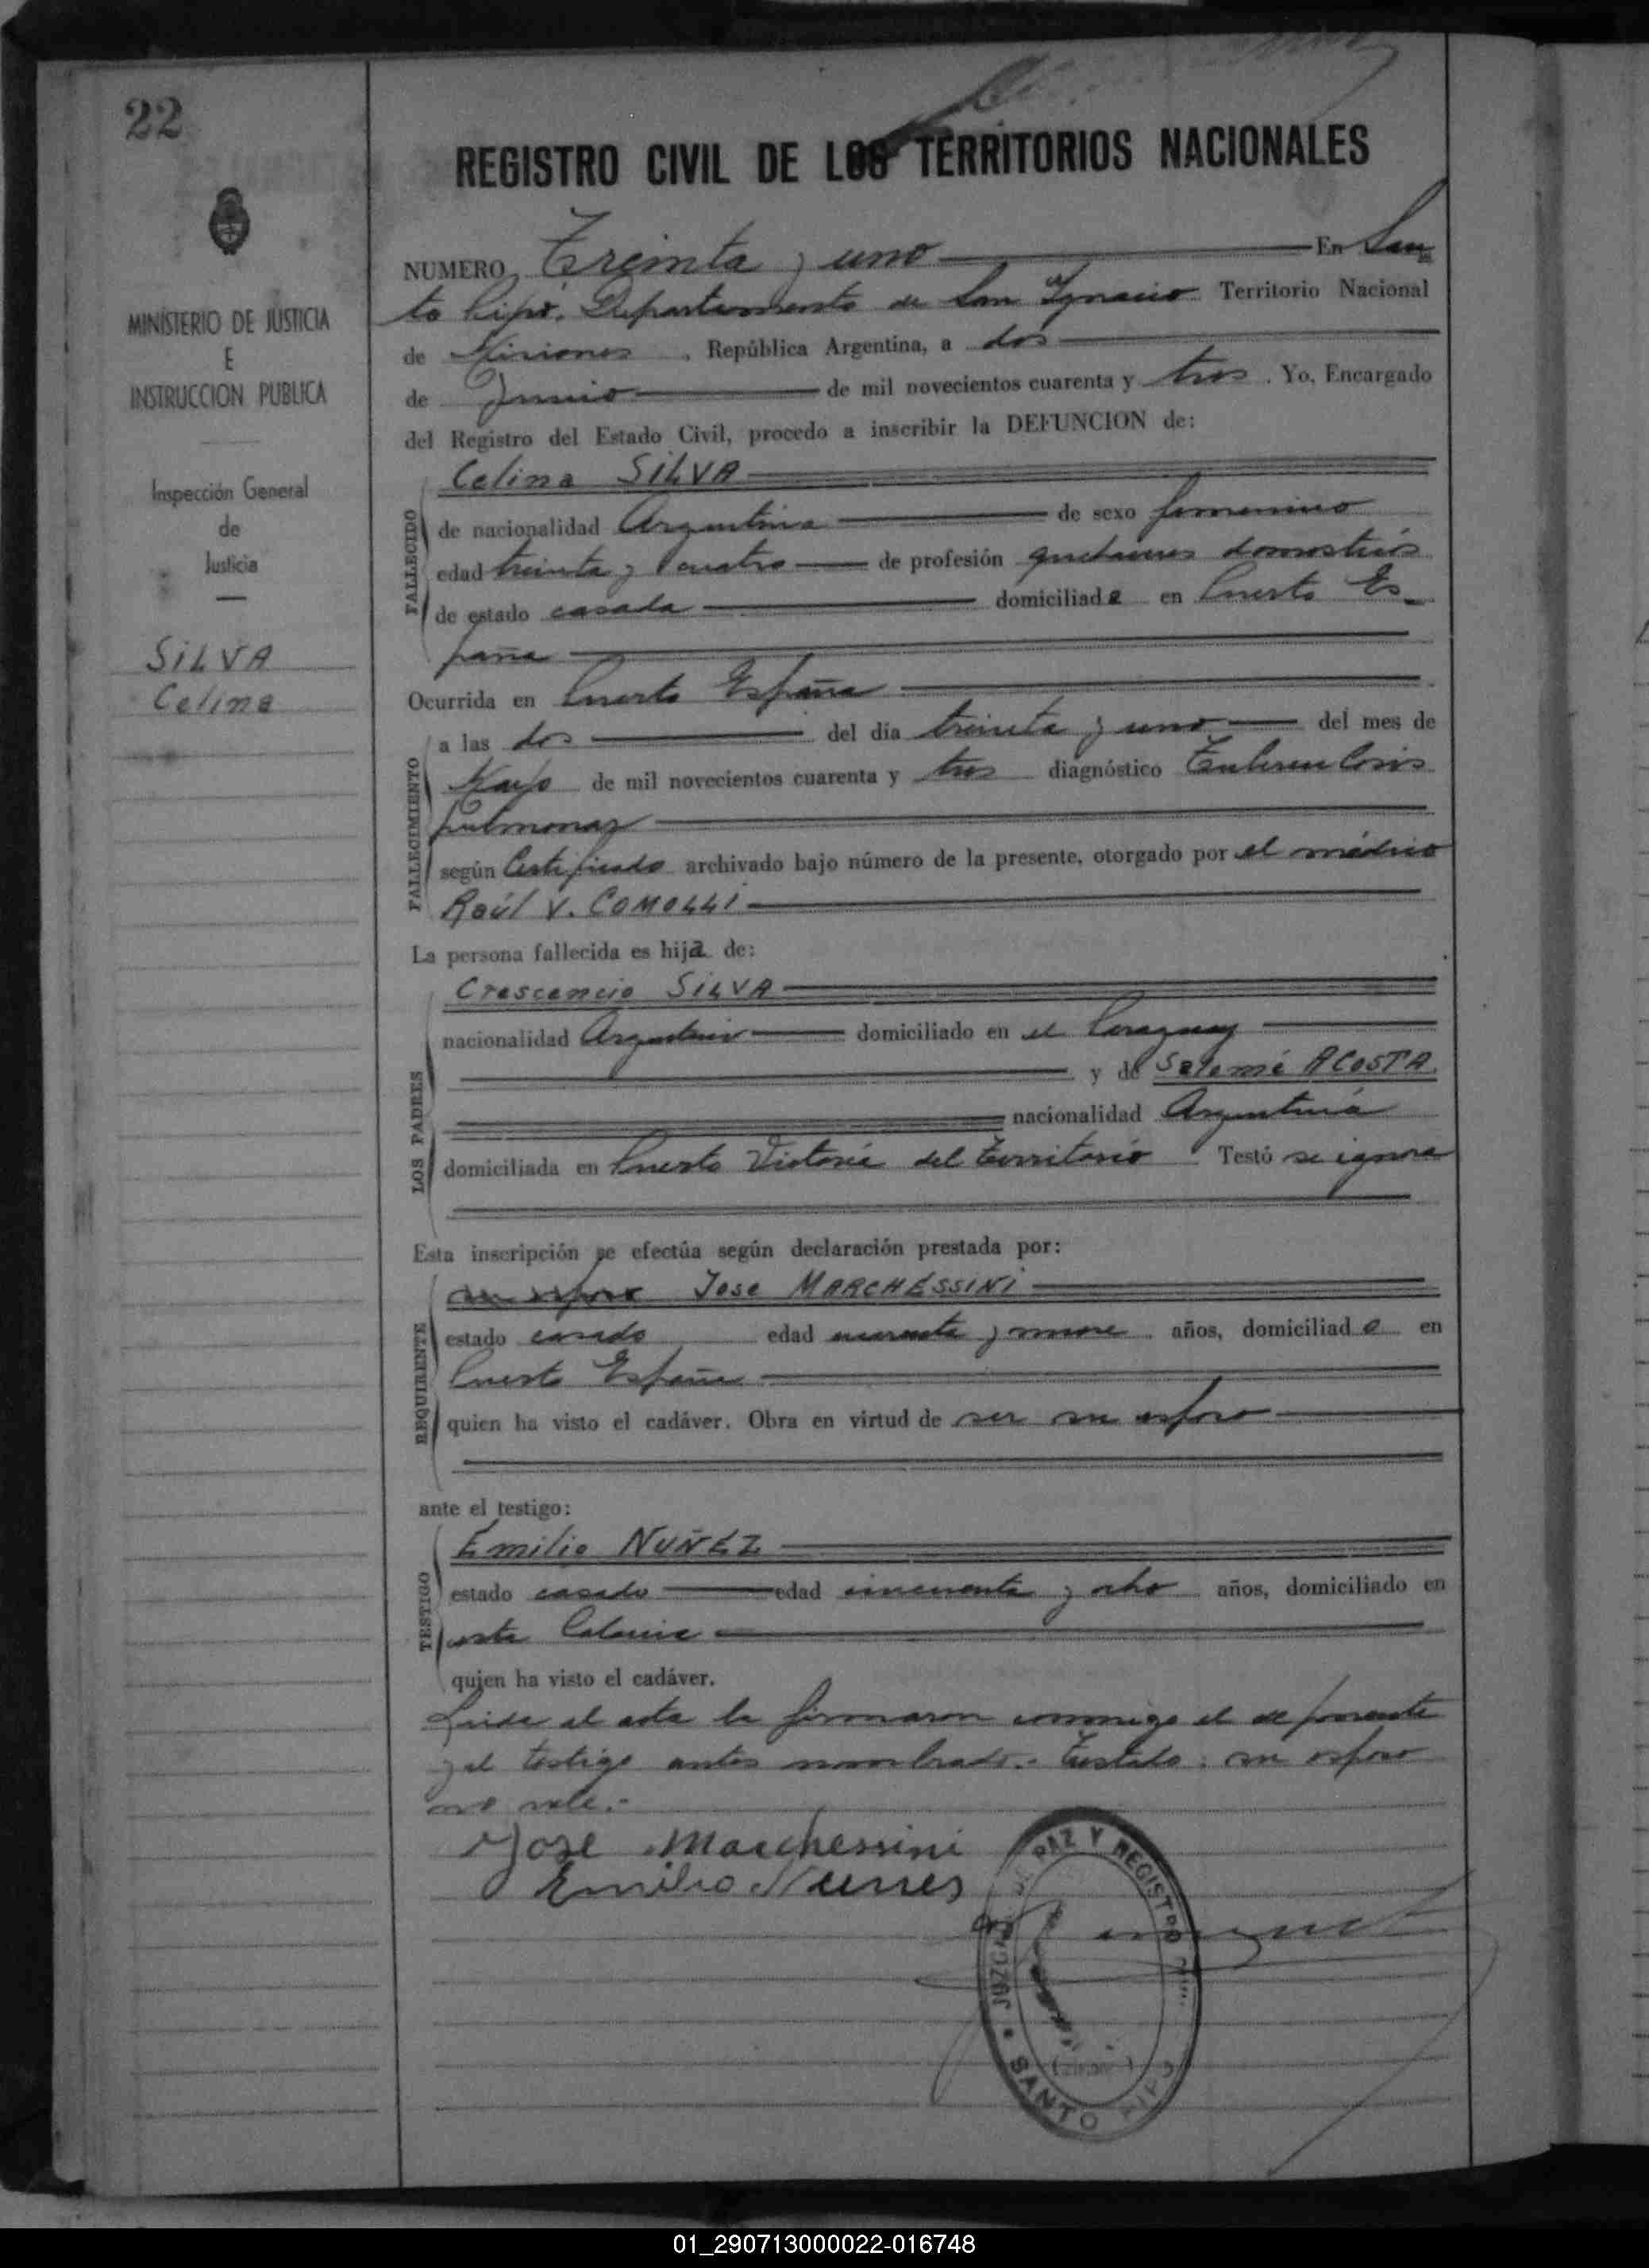 22
REGISTRO CIVIL DE LOS TERRITORIOS NACIONALES
MINISTERIO DE JUSTICIA
E
INSTRUCCION PUBLICA
Inspección General
de
Justicia
SILVA
Celina
NUMERO Treinta y uno En San
to Pipó, Departamento de San Ignacio Territorio Nacional
de Misiones, República Argentina, a dos
de Junio de mil novecientos cuarenta y tres. Yo, Encargado
del Registro del Estado Civil, procedo a inscribir la DEFUNCION de:
Celina SILVA
FALLECIDO
de nacionalidad Argentina de sexo femenino
edad treinta y cuatro de profesión quehaceres domesticos
de estado casada domiciliada en Puerto Es-
paña
Ocurrida en Puerto España
FALLECIMIENTO
a las dos del día treinta y uno del mes de
Mayo de mil novecientos cuarenta y tres diagnóstico Tuberculosis
pulmonar
según Certificado archivado bajo número de la presente, otorgado por el médico
Raúl V. COMOLLI
La persona fallecida es hija de:
LOS PADRES
Crescencio SILVA
nacionalidad Argentino domiciliado en el Paraguay
y de Salomé ACOSTA
nacionalidad Argentina
domiciliada en Puerto Victoria del Territorio Testó se ignora
Esta inscripción se efectúa según declaración prestada por:
REQUIRENTE
su esposo José MARCHESSINI
estado casado edad cuarenta y nueve años, domiciliado en
Puerto España
quien ha visto el cadáver. Obra en virtud de ser su esposo
ante el testigo:
TESTIGO
Emilio NUÑEZ
estado casado edad cincuenta y ocho años, domiciliado en
esta Colonia
quien ha visto el cadáver.
Leida el acta la firmaron conmigo el deponente
y el testigo antes nombrado.- Testado: su esposo
no vale.-
Jose Marchessini
Emilio Nunes
JUZGADO DE PAZ Y REGISTRO CIVIL
SANTO PIPO
01_290713000022-016748